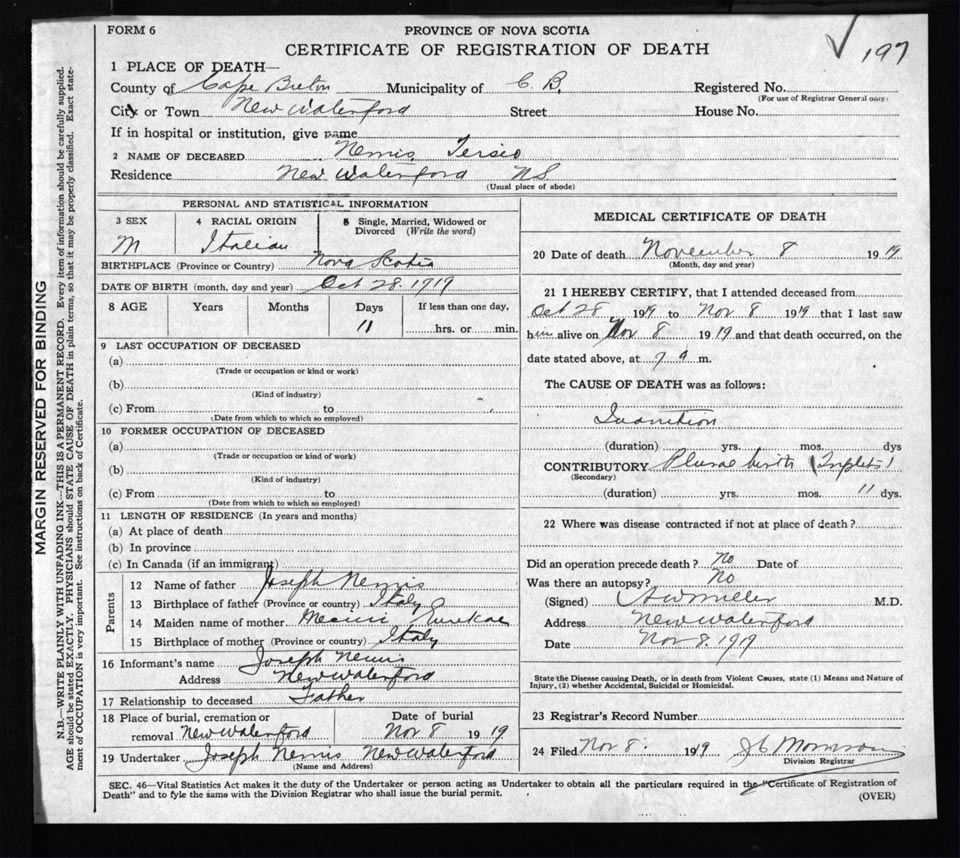 FORM 6
PROVINCE OF NOVA SCOTIA
CERTIFICATE OF REGISTRATION OF DEATH
197
1 PLACE OF DEATH—
County of Cape Breton Municipality of C. B. Registered No.
(For use of Registrar General only)
City or Town New Waterford Street House No.
If in hospital or institution, give name
2 NAME OF DECEASED Nemis Tersio
Residence New Waterford NS
(Usual place of abode)
PERSONAL AND STATISTICAL INFORMATION
3 SEX 4 RACIAL ORIGIN 5 Single, Married, Widowed or
Divorced (Write the word)
M Italian
BIRTHPLACE (Province or Country) Nova Scotia
DATE OF BIRTH (month, day and year) Oct 28. 1919
8 AGE Years Months Days If less than one day,
11 hrs. or min.
9 LAST OCCUPATION OF DECEASED
(a)
(Trade or occupation or kind or work)
(b)
(Kind of industry)
(c) From to
(Date from which to which so employed)
10 FORMER OCCUPATION OF DECEASED
(a)
(Trade or occupation or kind of work)
(b)
(Kind of industry)
(c) From to
(Date from which to which so employed)
11 LENGTH OF RESIDENCE (In years and months)
(a) At place of death
(b) In province
(c) In Canada (if an immigrant)
Parents
12 Name of father Joseph Nemis
13 Birthplace of father (Province or country) Italy
14 Maiden name of mother
15 Birthplace of mother (Province or country) Italy
16 Informant's name Joseph Nemis
Address New Waterford
17 Relationship to deceased Father
18 Place of burial, cremation or Date of burial
removal New Waterford Nov 8 1919
19 Undertaker Joseph Nemis New Waterford
(Name and Address)
MEDICAL CERTIFICATE OF DEATH
20 Date of death November 8 1919
(Month, day and year)
21 I HEREBY CERTIFY, that I attended deceased from
Oct 28 1919 to Nov 8 1919 that I last saw
him alive on Nov 8 1919 and that death occurred, on the
date stated above, at 7 a m.
The CAUSE OF DEATH was as follows:
Inanition
(duration) yrs. mos. dys
CONTRIBUTORY Plural birth (Triplets)
(Secondary)
(duration) yrs. mos. 11 dys.
22 Where was disease contracted if not at place of death?
Did an operation precede death? No Date of
Was there an autopsy? No
(Signed) A W Miller M.D.
Address New Waterford
Date Nov 8. 1919
State the Disease causing Death, or in death from Violent Causes, state (1) Means and Nature of
Injury, (2) whether Accidental, Suicidal or Homicidal.
23 Registrar's Record Number
24 Filed Nov 8. 1919 J C Morrison
Division Registrar
SEC. 46—Vital Statistics Act makes it the duty of the Undertaker or person acting as Undertaker to obtain all the particulars required in the "Certificate of Registration of
Death" and to fyle the same with the Division Registrar who shall issue the burial permit.
(OVER)
MARGIN RESERVED FOR BINDING
N.B.—WRITE PLAINLY WITH UNFADING INK—THIS IS A PERMANENT RECORD. Every item of information should be carefully supplied.
AGE should be stated EXACTLY. PHYSICIANS should STATE CAUSE OF DEATH in plain terms, so that it may be properly classified. Exact state-
ment of OCCUPATION is very important. See instructions on back of Certificate.